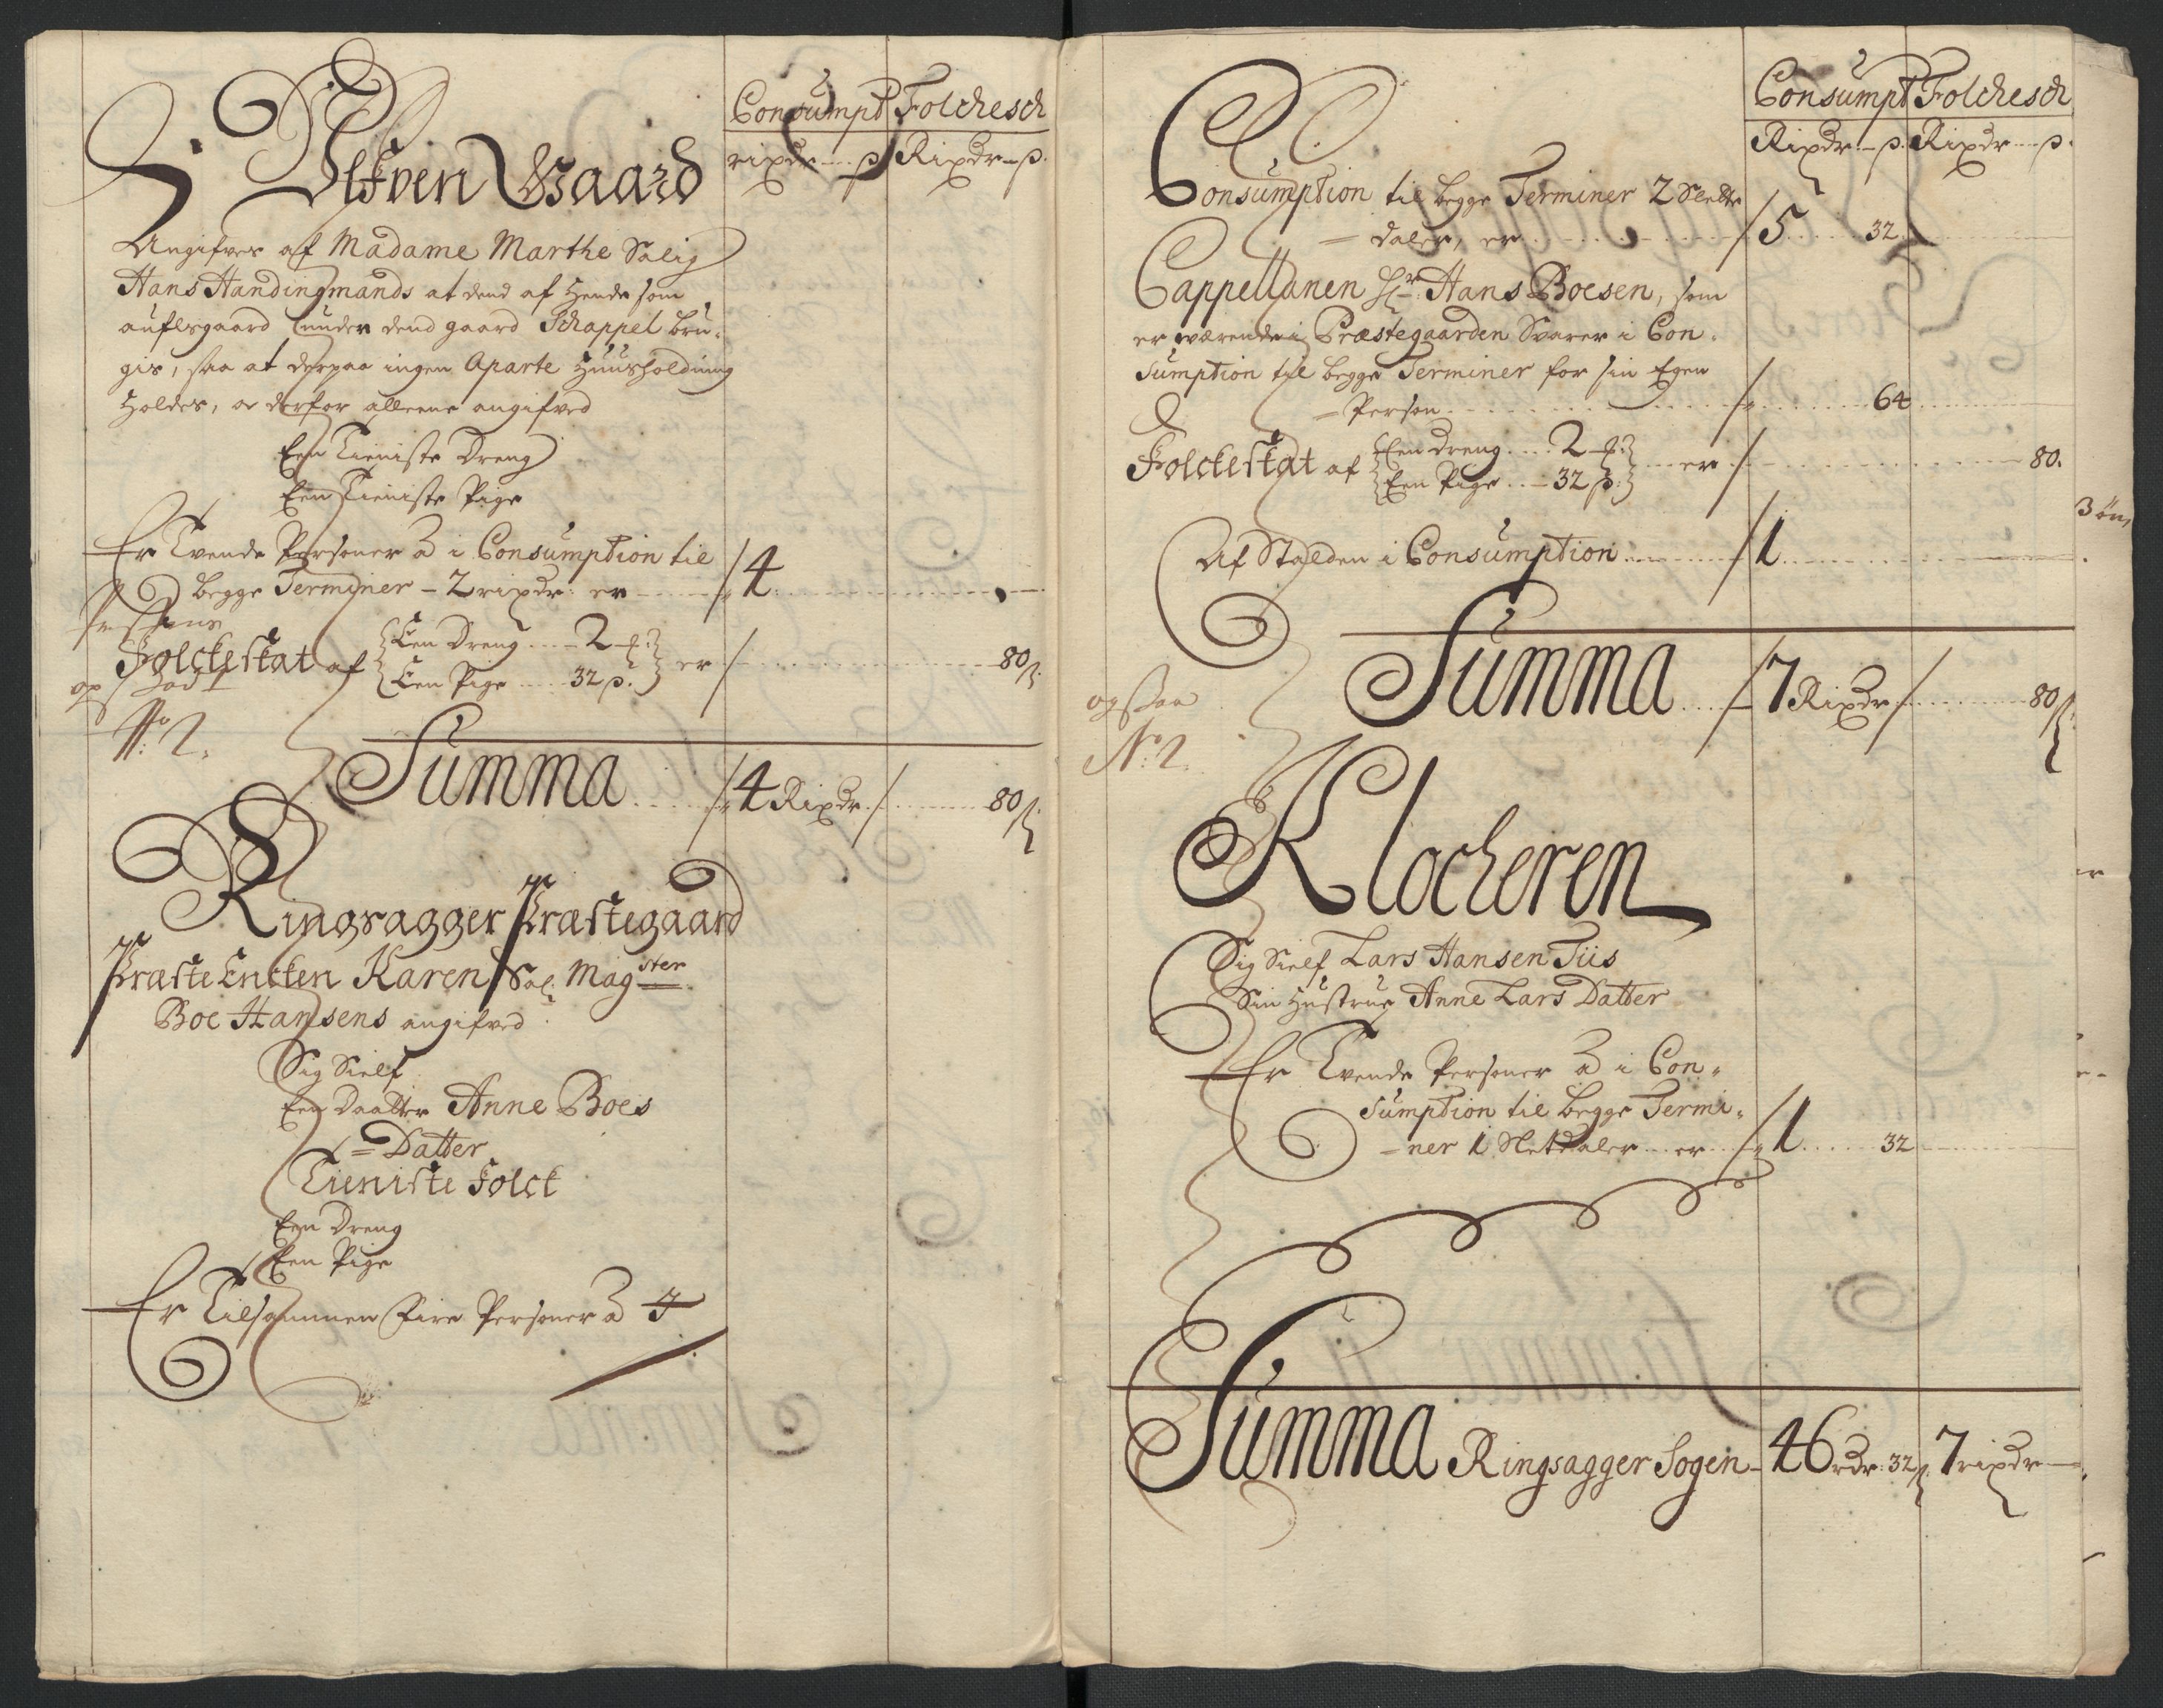 Consumpt Folckesch
ripdr ß Ripdr ß.
Ulfven Gaard
Angifves af Madame Marthe Salig
Hans Handingmands at dend af Hende som
auflsgaard under dend gaard Schappel bru,
gis, saa at derpaa ingen Aparte Huusholdning
Holdes, er derfor alleene angifved
Een Tieniste Dreng
Een Tieniste Pige
Er Tvende Personer a i Consumption til
begge Terminer - 2 ripdr: er 4
Folckeskat af Een Dreng 2 Een Pige 32 ß. er 80 ß.
No 2.
Summa 4 Ripdr. 80 ß
Ringsagger Præstegaard
Præste Encken Karen Sal: Magster
Boe Hansens angifved
Sig Sielf
Een Daatter Anne Boes
= Datter
Tieniste Folck
Een Dreng
Een Pige
Er Tilsammen Fire Personer a 4
Consumpt Folckesch
Ripdr ß. Ripdr ß.
Consumption til begge Terminer 2 Slette
= daler, er 5 32
Cappellanen Hr: Hans Boesen, som
er værende i Præstegaarden Svarer i Con,
sumption til begge Terminer for sin Egen
= Person 64
Folckeskat af Een dreng 2 Een Pige 32 ß. er 80.
Af Stalden i Consumption 1
Summa 7 Ripdr 80 ß
ogsaa
No: 2.
Klockeren
Sig Sielf Lars Hansen Tiis
Sin Hustrue Anne Lars Datter
Er Tvende Personer a i Con,
sumption til begge Termi,
-ner 1 Sletdaler er 1 32
Summa Ringsagger Sogen 46 rdr: 32 ß 7 ripdr